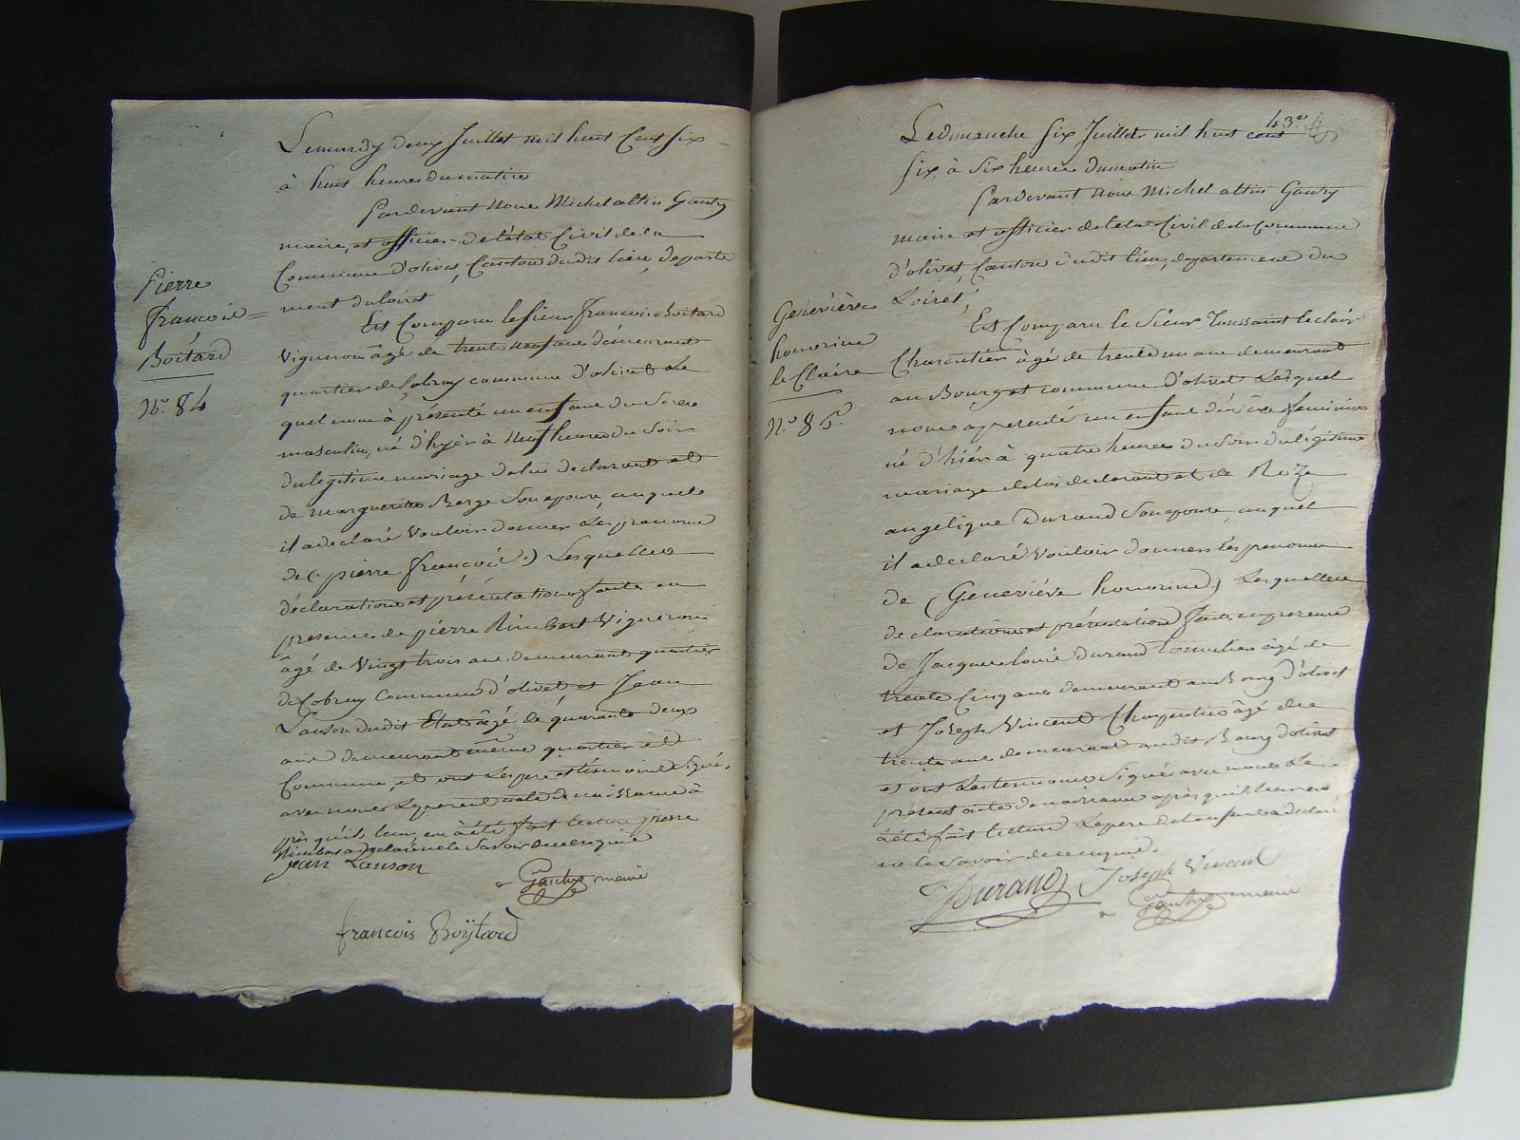 Pierre
francois
Boitard
No. 84
Le mardy deux Juillet mil huit Cent Six
à huit heures du matin
Pardevant Nous Michel altin Gautry
maire, et officier de l'état Civil de la
Commune d'olivet, Canton dudit lieu, departe
ment du loiret
Est Comparu le sieur francois Boitard
Vigneron âgé de trente neuf ans demeurant
quartier de commune d'olivet Le
quel nous à présenté un enfant du Sexe
masculin, né d'hyer à Neuf heures du Soir
du légitime mariage de lui declarant et
de marguerite Berge Son epouse, auquel
il a declaré Vouloir donner Les prenoms
de (pierre francois) Lesquelles
déclaration et présentation faite en
presence de pierre Rimbert Vigneron
âgé de Vingt trois ans demeurant quartier
de Commune d'olivet et Jean
Lanson dudit Etat âgé de quarante deux
ans demeurant même quartier et
Commune, et ont Les pere et témoins Signé
avec nous Le present acte de naissance à
près qu'il leur en à été fait lecture pierre
Rimbert a declaré ne le Savoir de ce enquis
jean Lanson
Gautry maire
francois Boÿtard
43
Genevière
honorine
le Claire
No. 85.
Le dimanche Six Juillet mil huit cent
Six, à Six heures du matin
Pardevant Nous Michel altin Gautry
maire et officier de l'état Civil de la Commune
d'olivet, Canton dudit lieu, departement du
Loiret,
Est Comparu le Sieur Toussaint leclair
Charentier âgé de trente un ans demeurant
au Bourg et commune D'olivet Lequel
nous a presenté un enfant du Sexe feminin
né d'hiér à quatre heures du Soir du légitime
mariage de lui declarant et de Roze
angélique Durand Son epouse, auquel
il a declaré Vouloir donner les prenoms
de (Geneviéve honorine) Lesquelles
declaration et présentation faite en presence
de Jacque louis Durand Tonnelier âgé de
trente Cinq ans demeurant au Bourg d'olivet
et Joseph Vincent Charpentier âgé de
trente ans demeurant audit Bourg d'olivet
et ont Les temoins Signé avec nous Le
présent acte de naissance après qu'il leur en
à été fait lecture Le pere de l'enfant a déclaré
ne le Savoir de ce enquis.
Durand Joseph Vincent
Gautry maire